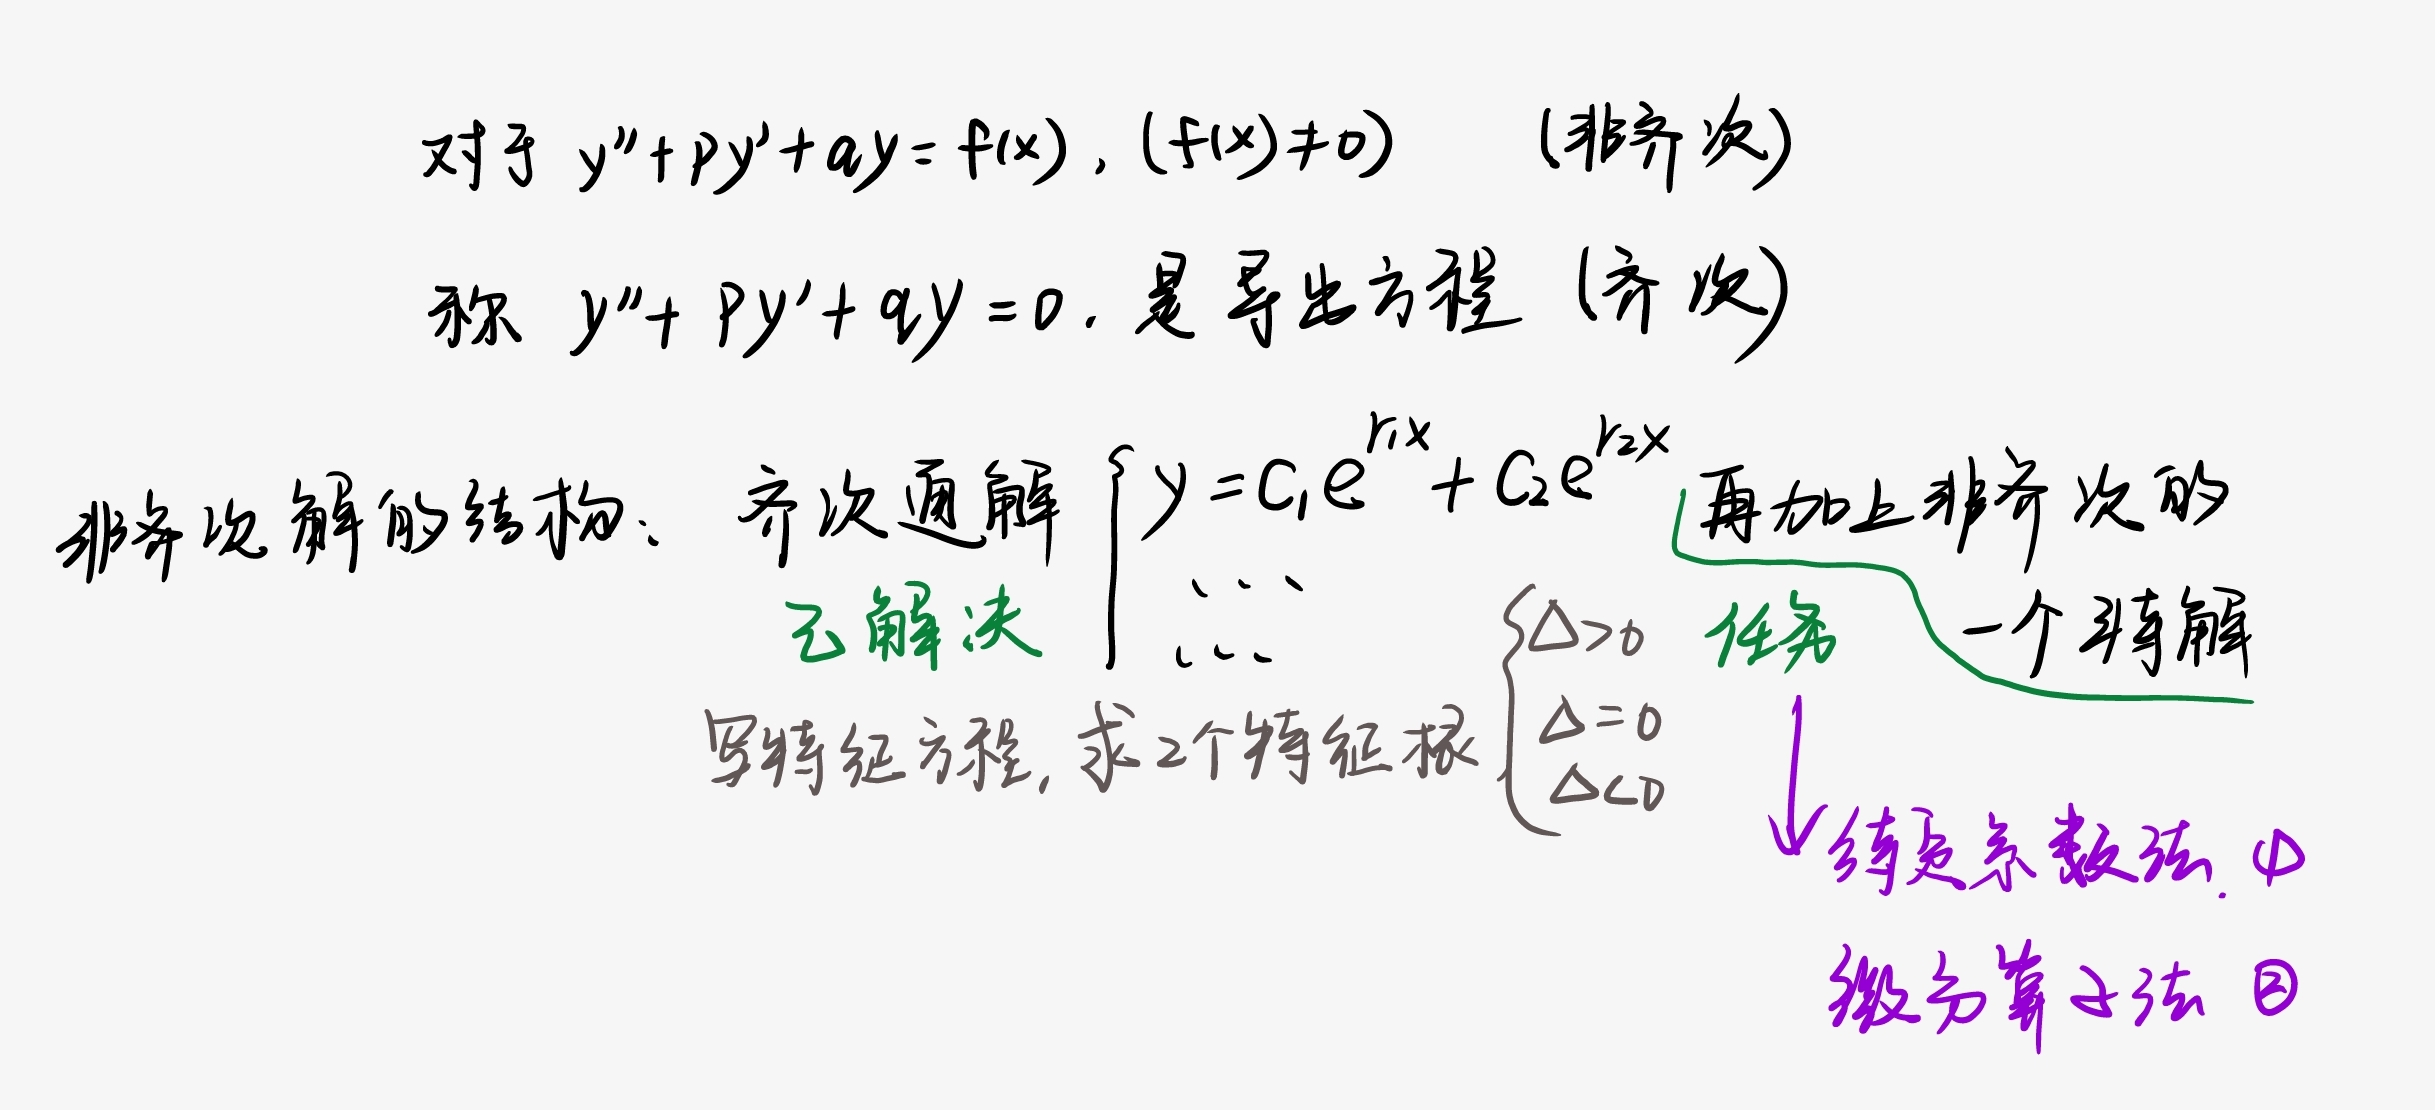 对于 y''+py'+qy=f(x),(f(x)≠0) (非齐次)
称 y''+py'+qy=0.是导出方程(齐次)
非齐次解的结构: 齐次通解{y=C₁e^{r₁x}+C₂e^{r₂x} 再加上非齐次的
一个特解
...
...
已解决
任务
写特征方程,求2个特征根{Δ>0
Δ=0
Δ<0
待定系数法.①
微分算子法 ②